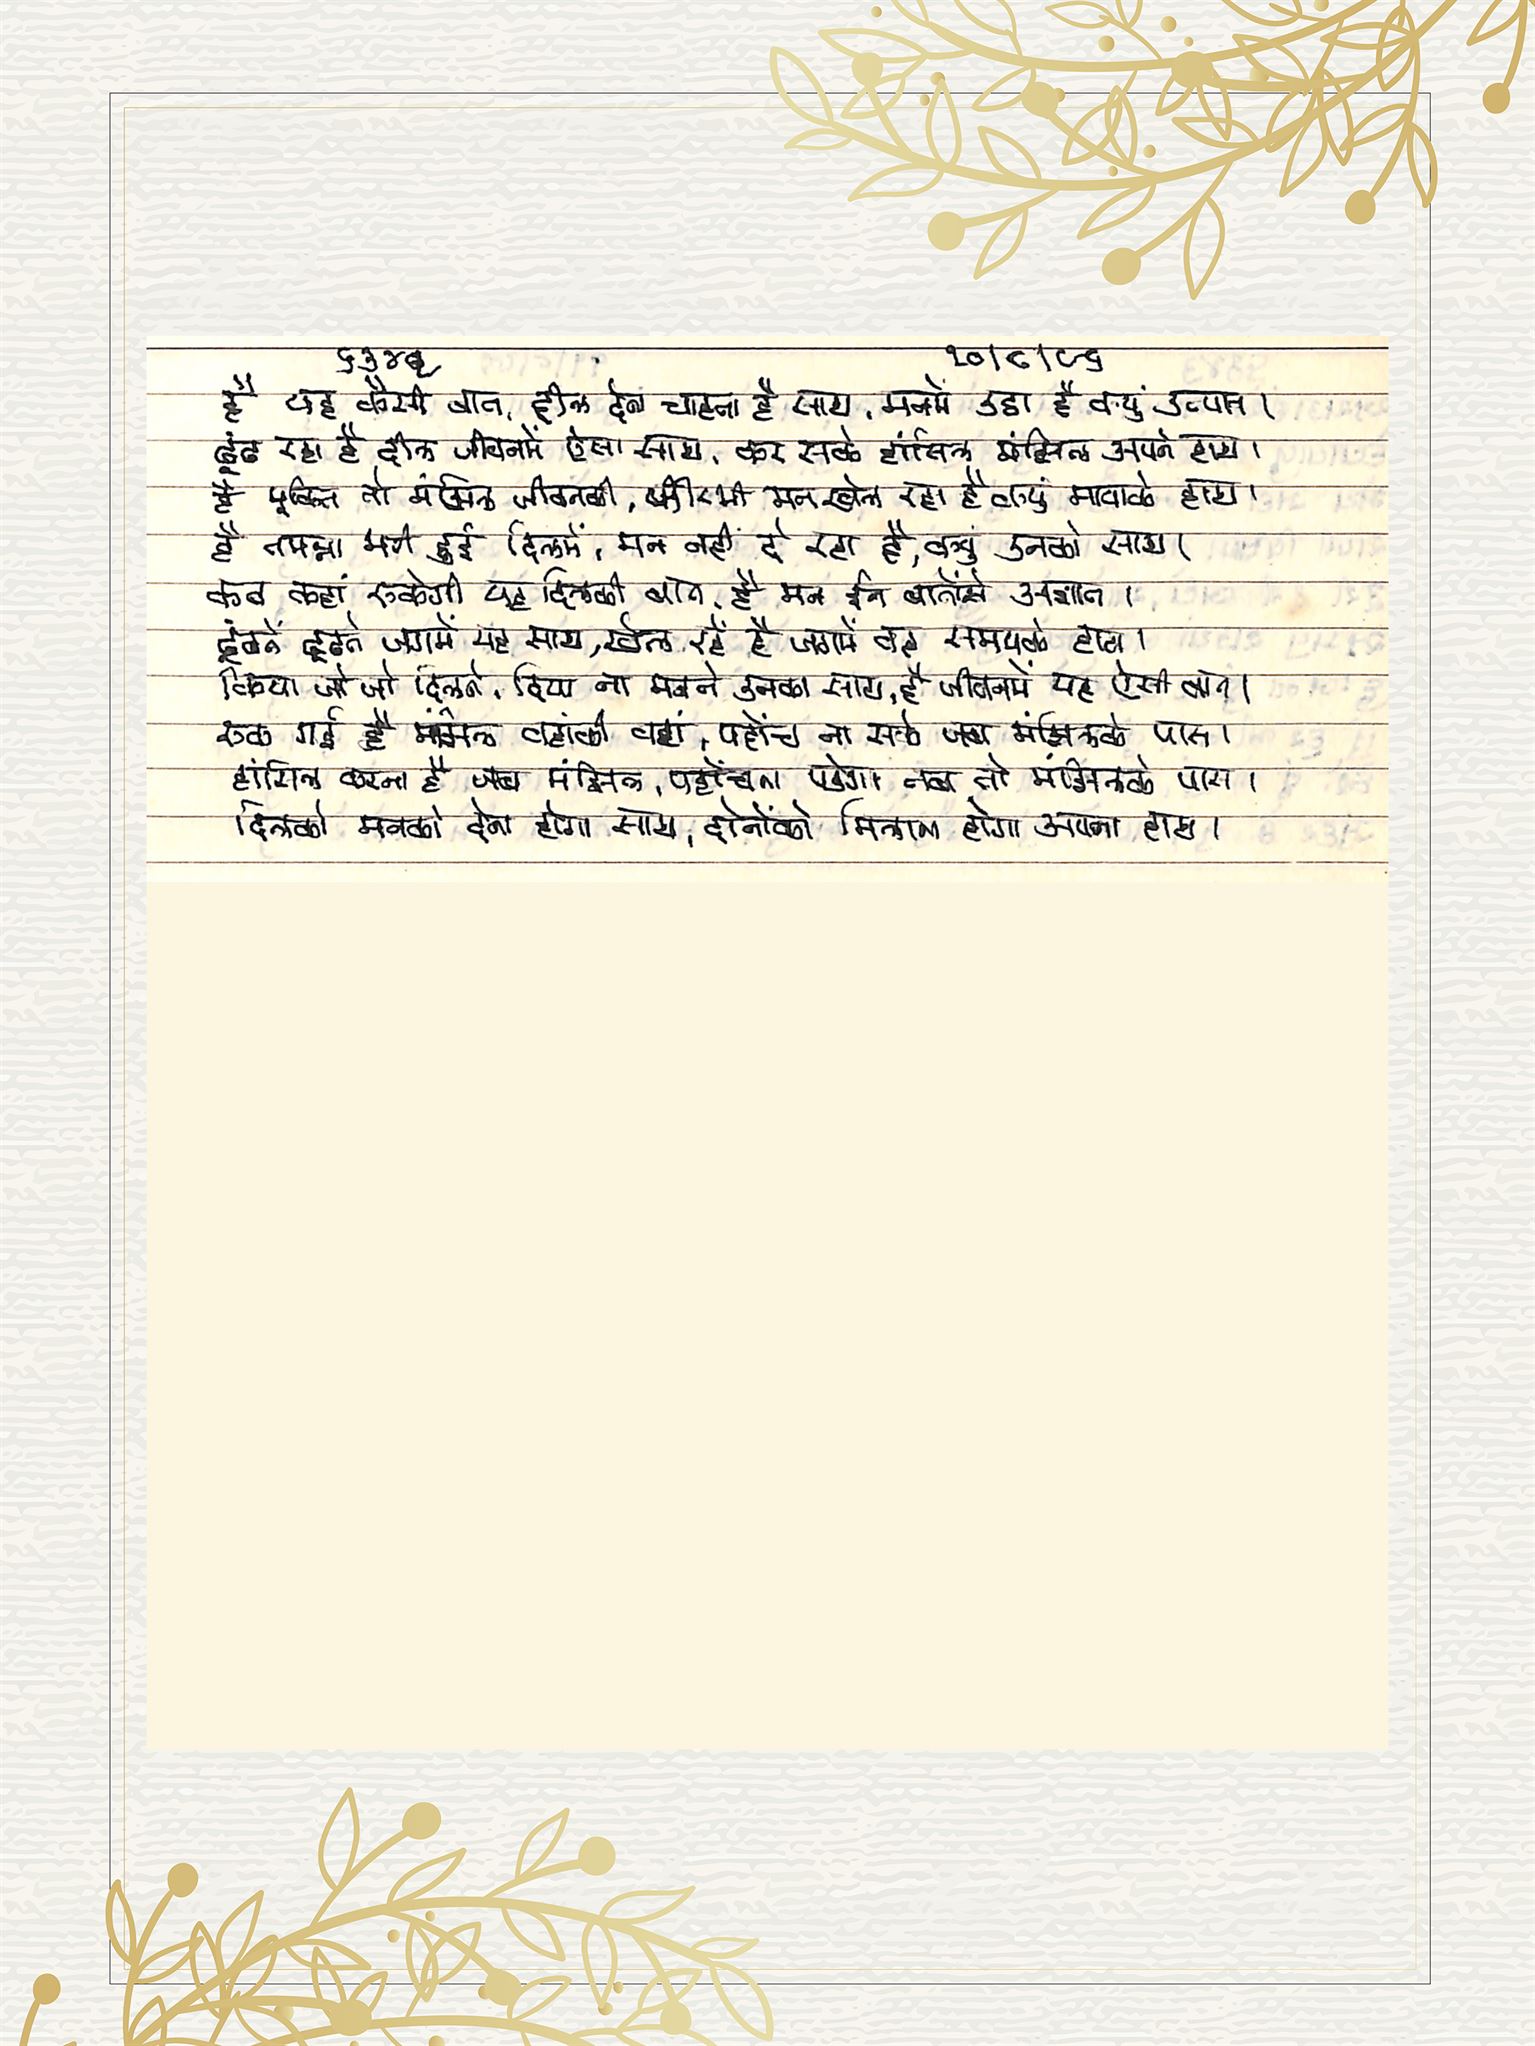 ६३४४ २०/८/८६
है यह कैसी बात, दील देना चाहता है साथ, मनमें उठा है क्युं उत्पात।
ढूंढ रहा है दील जीवनमें ऐसा साथ, कर सके हांसिल मंझिल अपने हाथ।
है मुक्ति तो मंझिल जीवनकी, फीरभी मन खेल रहा है क्युं मायाके हाथ।
है तमन्ना भरी हुई दिलमें, मन नहीं दे रहा है, क्युं उनको साथ।
कब कहां रुकेगी यह दिलकी बात, है मन ईन बातोंसे अज्ञात।
ढूंढते ढूढते जगमें यह साथ, खेल रहें है जगमें वह समयके हाथ।
किया जो जो दिलने, दिया ना मनने उनका साथ, है जीवनमें यह ऐसी बात।
रुक गई है मंझिल वहांकी वहां, पहोंच ना सके जब मंझिलके पास।
हांसिल करना है जब मंझिल, पहोंचना पडेगा तब तो मंझिलके पास।
दिलको मनको देना होगा साथ, दोनोंको मिलाना होगा अपना हाथ।